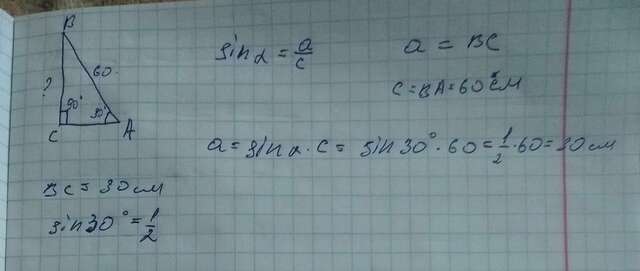 B
60
?
90°
30°
C
A
sin α = a/c
a = BC
c = BA = 60 см
a = sin α · c = sin 30° · 60 = 1/2 · 60 = 30 см
BC = 30 см
sin 30° = 1/2